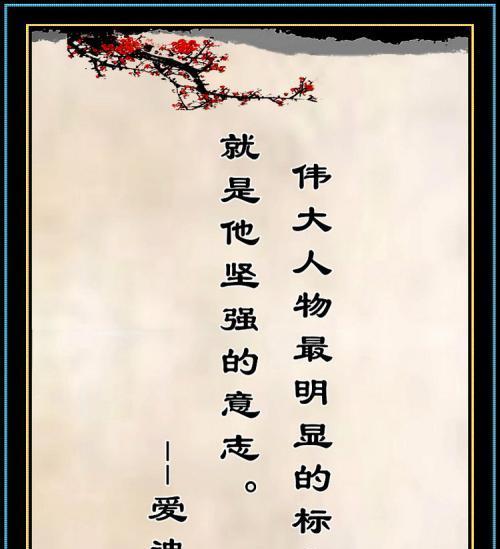 伟大人物最明显的标
就是他坚强的意志。
——爱迪